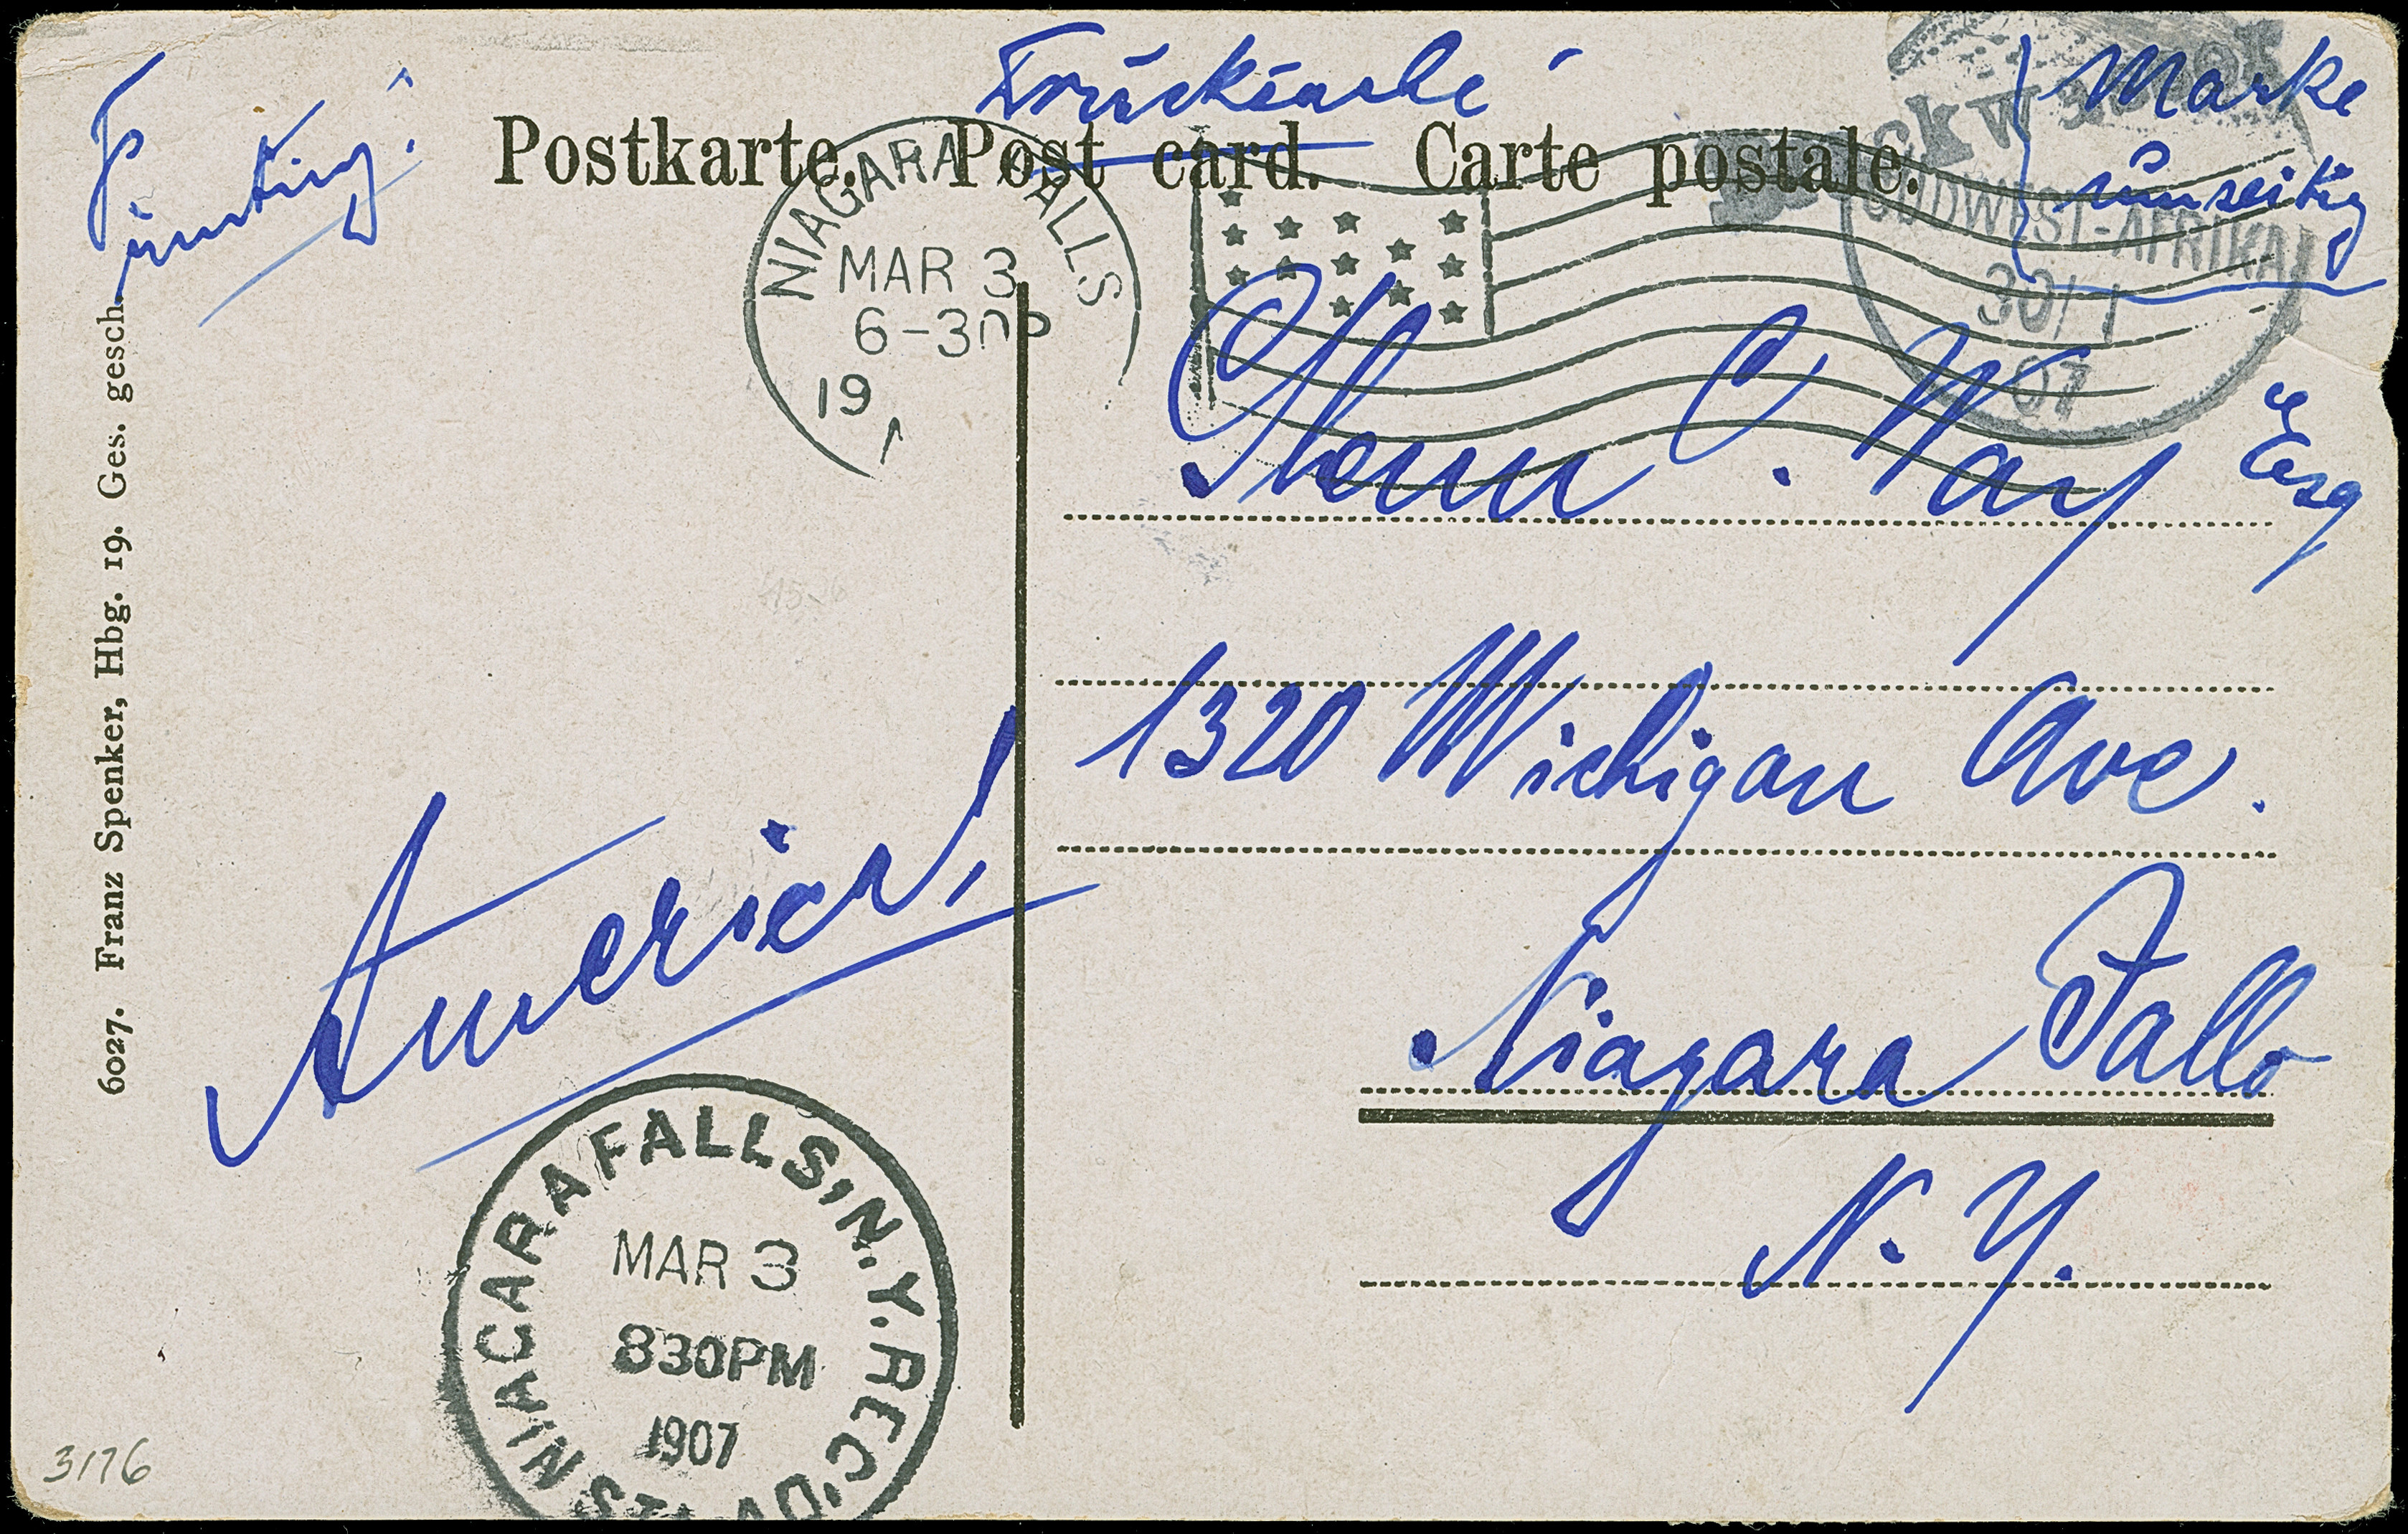 Drucksache
Marke
umseitig
Postkarte. Post card. Carte postale.
NIAGARA FALLS
MAR 3
6-30P
19
SÜDWEST-AFRIKA
30/1
07
C. Way
Esq
1320 Michigan Ave.
Niagara Falls
N. Y.
America!
6027. Franz Spenker, Hbg. 19. Ges. gesch.
NIAGARA FALLS, N.Y. REC'D.
MAR 3
830PM
1907
3176